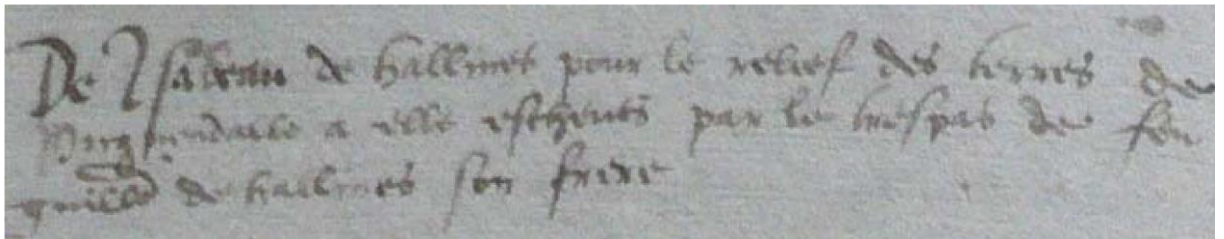 De Isabeau de hallines pour le relief des terres de
a elle escheues par le trespas de feu
guille de hallines son frere